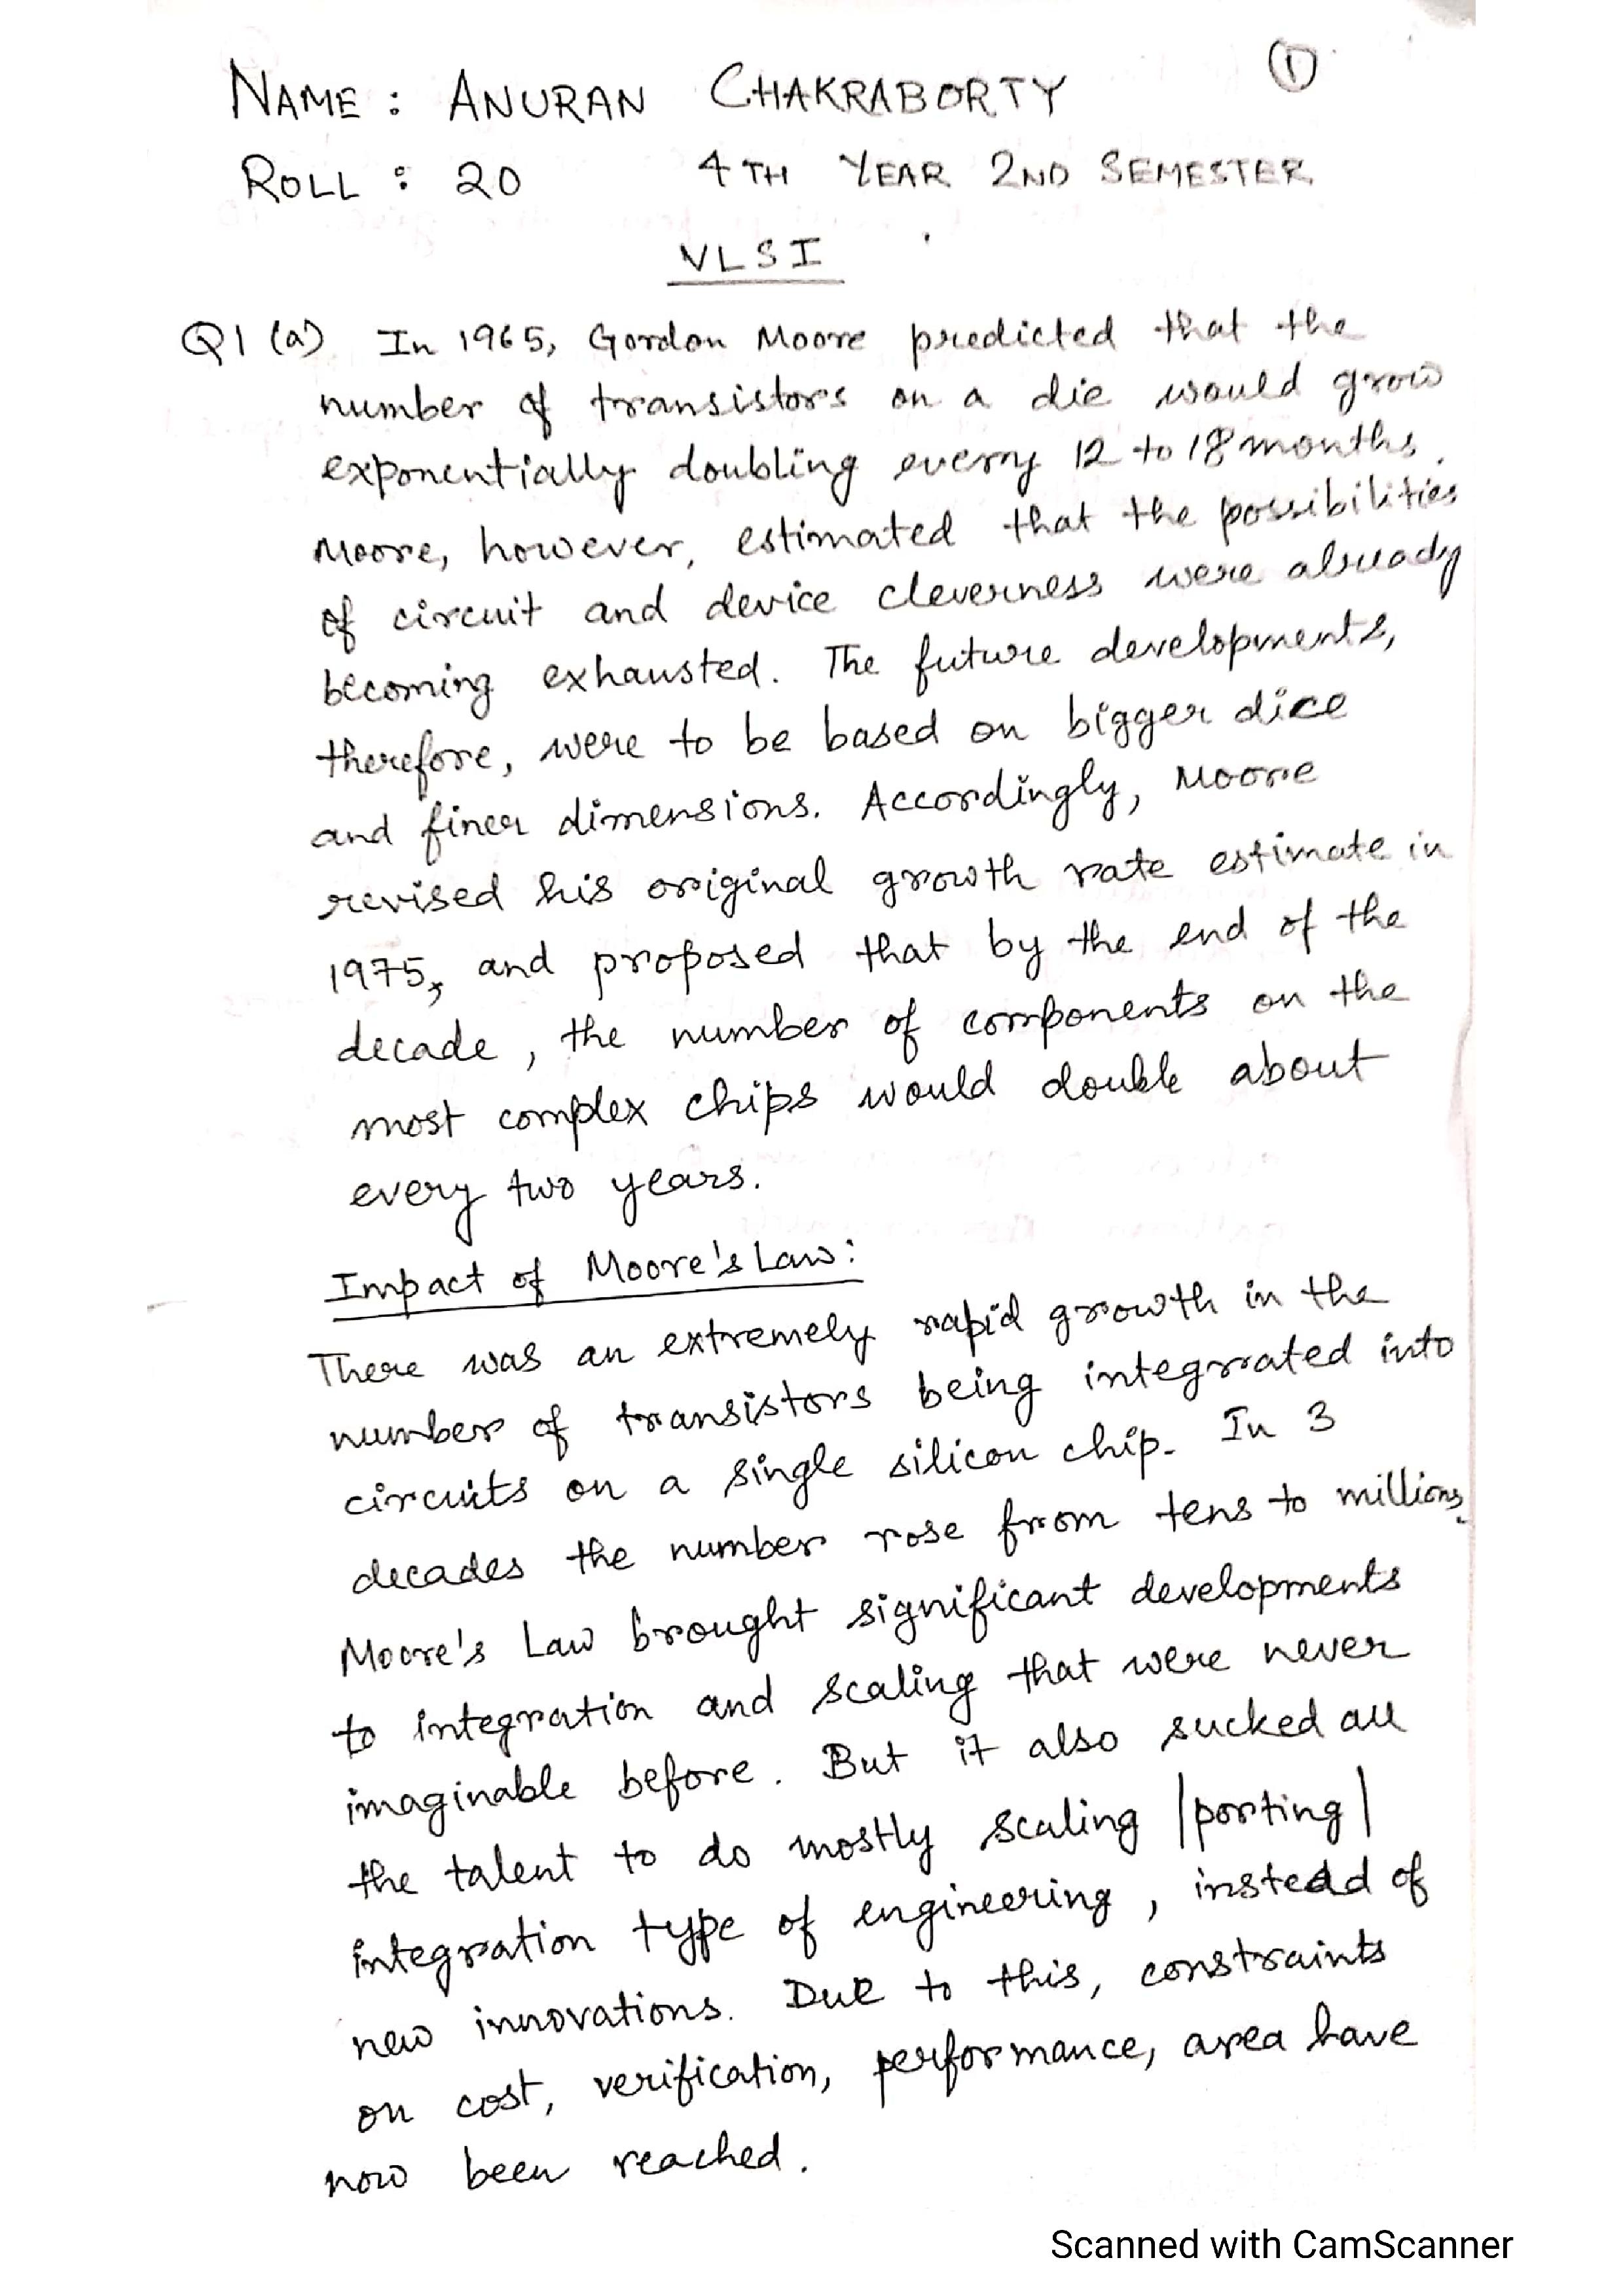 ①
NAME : ANURAN CHAKRABORTY
ROLL : 20 4TH YEAR 2ND SEMESTER
VLSI
Q1 (a) In 1965, Gordon Moore predicted that the
number of transistors on a die would grow
exponentially doubling every 12 to 18 months.
Moore, however, estimated that the possibilities
of circuit and device cleverness were already
becoming exhausted. The future developments,
therefore, were to be based on bigger dice
and finer dimensions. Accordingly, Moore
revised his original growth rate estimate in
1975, and proposed that by the end of the
decade, the number of components on the
most complex chips would double about
every two years.
Impact of Moore's Law:
There was an extremely rapid growth in the
number of transistors being integrated into
circuits on a single silicon chip. In 3
decades the number rose from tens to millions.
Moore's Law brought significant developments
to integration and scaling that were never
imaginable before. But it also sucked all
the talent to do mostly scaling |porting|
integration type of engineering, instead of
new innovations. Due to this, constraints
on cost, verification, performance, area have
now been reached.
Scanned with CamScanner